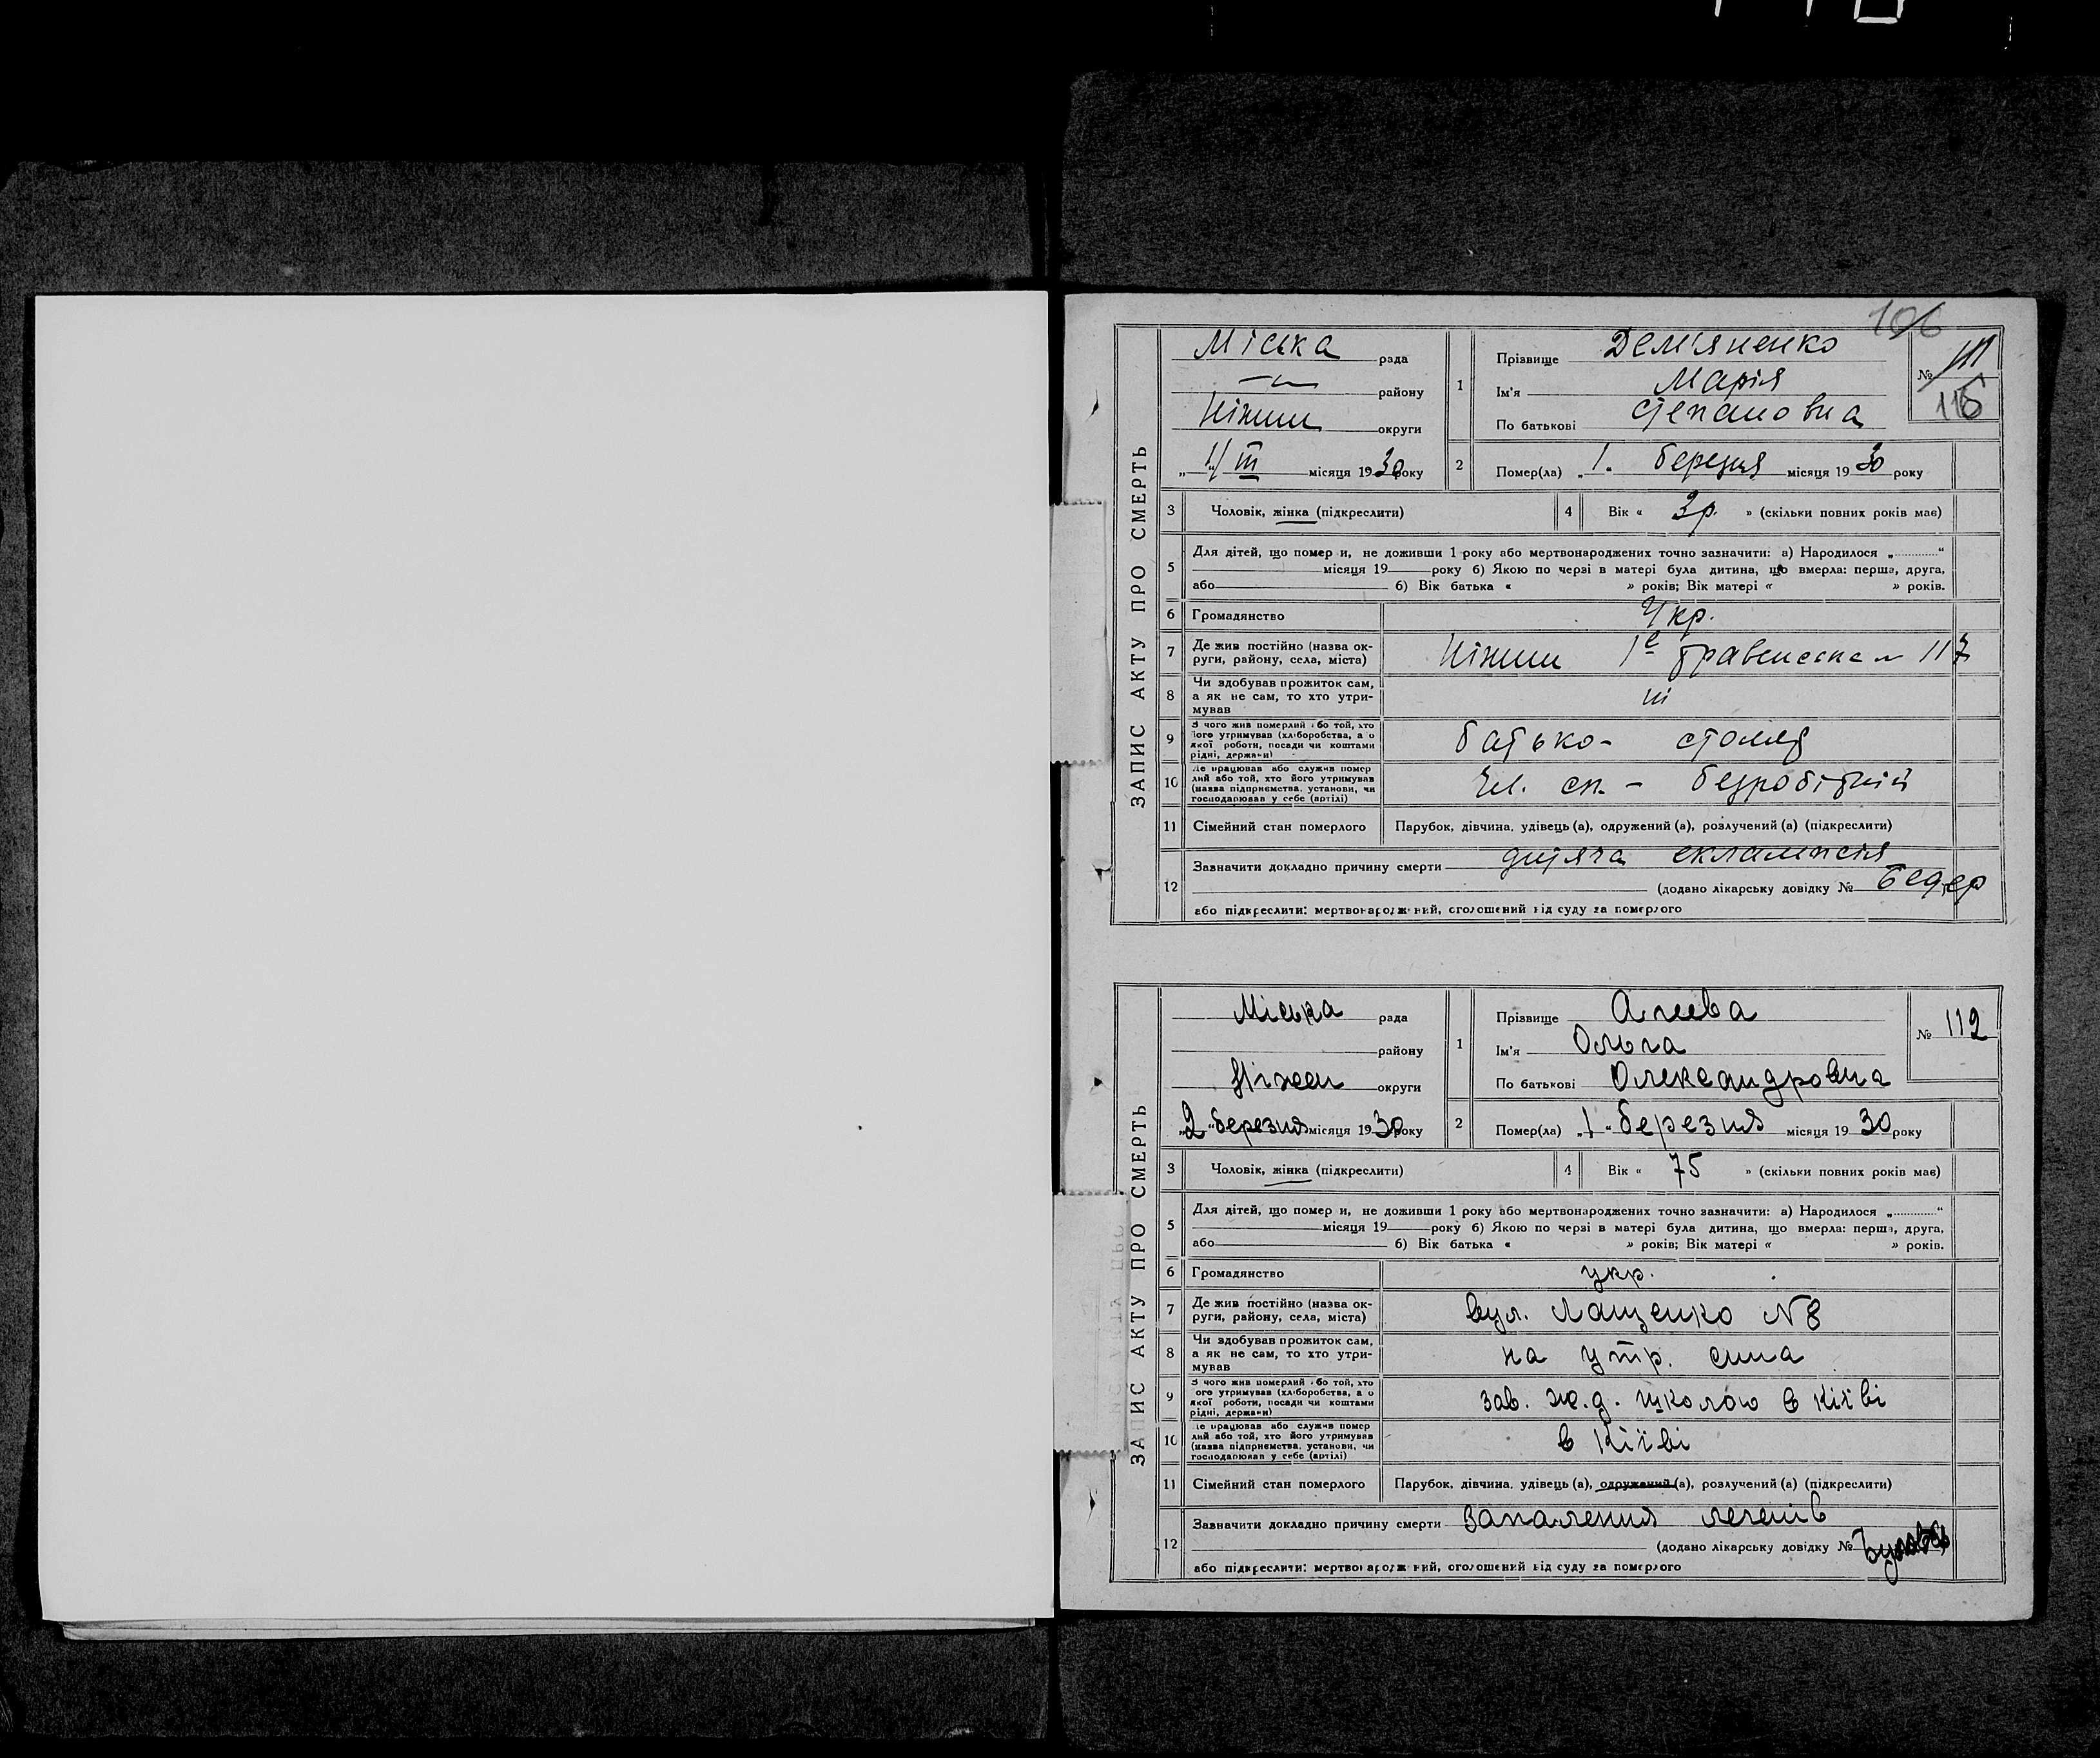 106
ЗАПИС АКТУ ПРО СМЕРТЬ
Міська рада
району
Ніжин округи
"1" III місяця 1930 року
1 Прізвище Дем'яненко
Ім'я Марія
По батькові Степановна
№ 111
115
2 Помер(ла) „1" березня місяця 1930 року
3 Чоловік, жінка (підкреслити)
4 Вік « 3 р. » (скільки повних років має)
5 Для дітей, що помер и, не доживши 1 року або мертвонароджених точно зазначити: а) Народилося „ "
місяця 19 року б) Якою по черзі в матері була дитина, що вмерла: перша, друга,
або б) Вік батька « » років; Вік матері « » років.
6 Громадянство Укр.
7 Де жив постійно (назва ок-
руги, району, села, міста) Ніжин 117
8 Чи здобував прожиток сам,
а як не сам, то хто утри-
мував ні
9 З чого жив померлий або той, хто
його утримував (хліборобства, а о
якої роботи, посади чи коштами
рідні, держави) батько - столяр
10 Де працював або служив помер
лий або той, хто його утримував
(назва підприємства, установи, чи
господарював у себе (артілі) Чл. сп. - безробітній
11 Сімейний стан померлого Парубок, дівчина, удівець (а), одружений (а), розлучений (а) (підкреслити)
12 Зазначити докладно причину смерти дитяча еклампсія
(додано лікарську довідку №
або підкреслити: мертвонароджений, оголошений від суду за померлого
ЗАПИС АКТУ ПРО СМЕРТЬ
Міська рада
району
Ніжен округи
„2" березня місяця 1930 року
1 Прізвище
Ім'я Ольга
По батькові Олександровна
№ 112
2 Помер(ла) „1" березня місяця 1930 року
3 Чоловік, жінка (підкреслити)
4 Вік « 75 » (скільки повних років має)
5 Для дітей, що помер и, не доживши 1 року або мертвонароджених точно зазначити: а) Народилося „ "
місяця 19 року б) Якою по черзі в матері була дитина, що вмерла: перша, друга,
або б) Вік батька « » років; Вік матері « » років.
6 Громадянство укр.
7 Де жив постійно (назва ок-
руги, району, села, міста) вул. Лащенко N 8
8 Чи здобував прожиток сам,
а як не сам, то хто утри-
мував на утр. сина
9 З чого жив померлий або той, хто
ого утримував (хліборобства, а о
якої роботи, посади чи коштами
рідні, держави) зав. ж.д. школою в Кіїві
10 Де працював або служив помер
лий або той, хто його утримував
(назва підприємства, установи, чи
господарював у себе (артілі) в Кіїві
11 Сімейний стан померлого Парубок, дівчина, удівець (а), одружений (а), розлучений (а) (підкреслити)
12 Зазначити докладно причину смерти Запалення легенів
(додано лікарську довідку №
або підкреслити: мертвонароджений, оголошений від суду за померлого